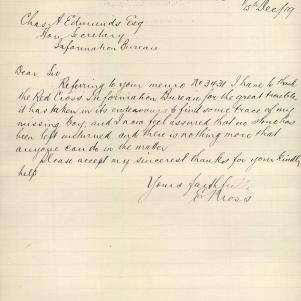 15th Dec/19
Chas A Edmunds Esq
Hon Secretary
Information Bureau
Dear Sir
Referring to your memo No 3431 I have to thank
the Red Cross Information Bureau for the great trouble
it has taken in its endeavours to find some trace of my
missing boy, and I now feel assured that no stone has
been left unturned, and there is nothing more that
anyone can do in the matter
Please accept my sincerest thanks for your kindly
help
Yours faithfully